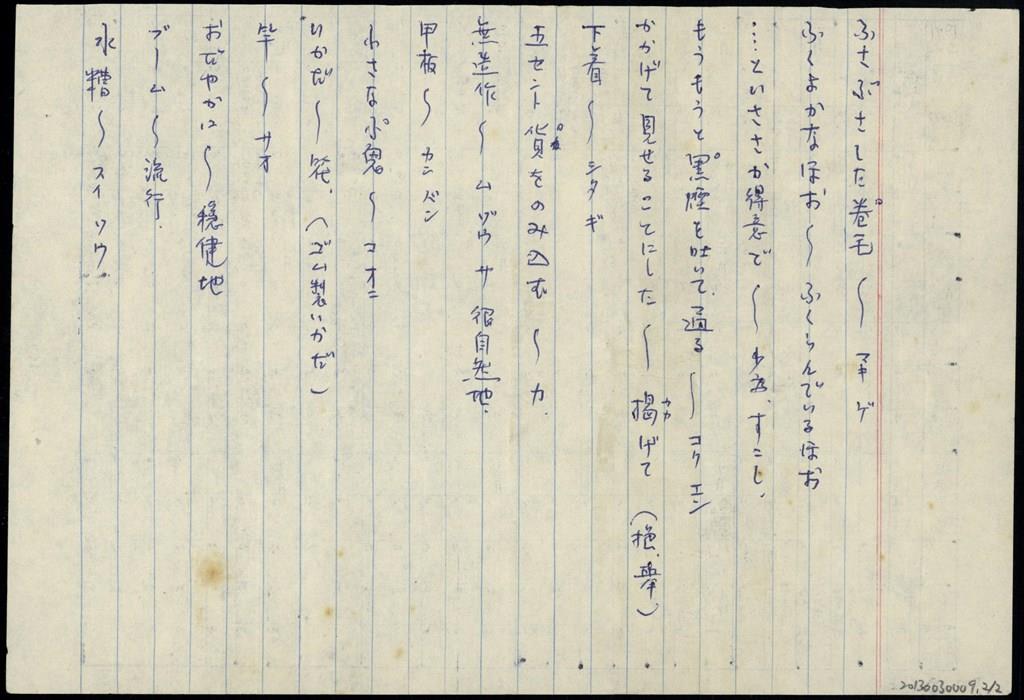 ふさふさした巻毛〜マキゲ
ふくよかなほお〜ふくらんでいるほお
…といささか得意で〜少々、すこし、
もうもうと黒煙を吐いて通る〜コクエン
かかげて見せることにした〜掲げて(カカ)
下着〜シタギ
五セント貨をのみ込む〜カ、
無造作〜ムゾウサ 很自然地、
甲板〜カンパン
小さな小鬼〜コオニ
いかだ〜筏、(ゴム製いかだ)
竿〜サオ
おだやかに〜穏健地
ブーム〜流行、
水槽〜スイソウ
20130030009,2/2